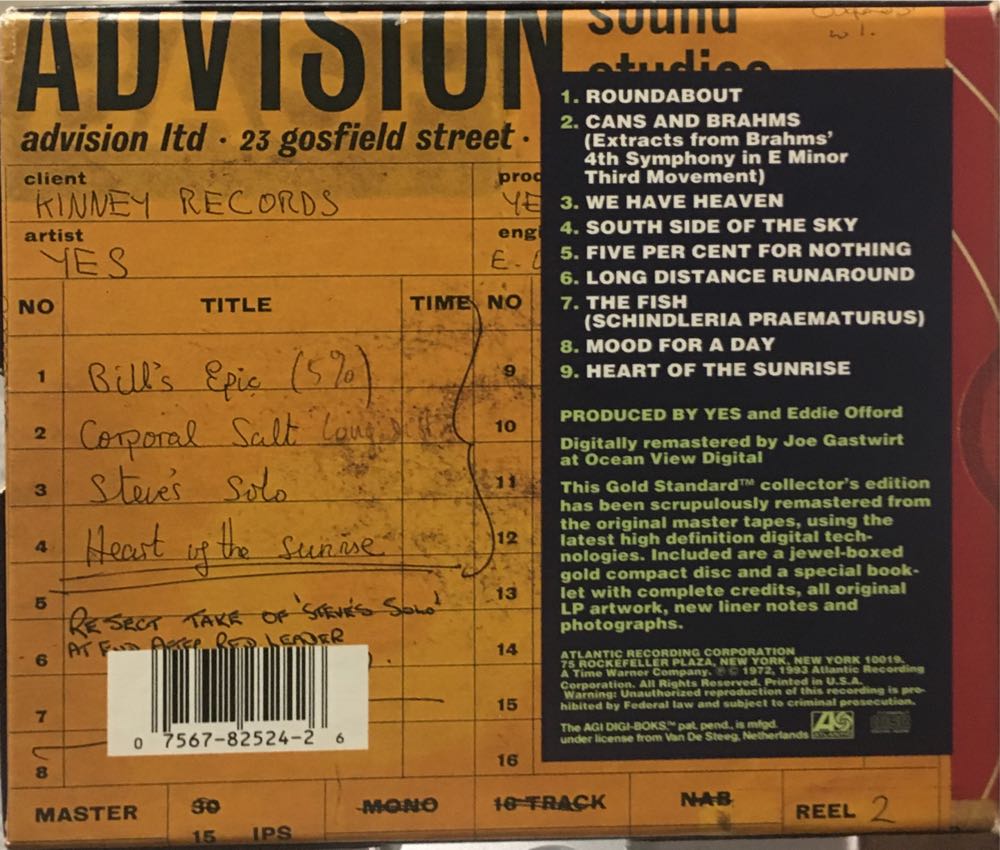 ADVISION sound
studios
advision ltd · 23 gosfield street ·
client
KINNEY RECORDS
artist
YES
NO TITLE TIME NO
1 Bill's Epic (5%) 9
2 Corporal Salt 10
3 Steve's Solo 11
4 Heart of the Sunrise 12
5 13
REJECT TAKE OF 'STEVE'S SOLO'
AT END AFTER RED LEADER
6 14
7 15
8 16
0 7567-82524-2 6
MASTER 30 MONO 16 TRACK NAB REEL 2
15 IPS
1. ROUNDABOUT
2. CANS AND BRAHMS
(Extracts from Brahms'
4th Symphony in E Minor
Third Movement)
3. WE HAVE HEAVEN
4. SOUTH SIDE OF THE SKY
5. FIVE PER CENT FOR NOTHING
6. LONG DISTANCE RUNAROUND
7. THE FISH
(SCHINDLERIA PRAEMATURUS)
8. MOOD FOR A DAY
9. HEART OF THE SUNRISE
PRODUCED BY YES and Eddie Offord
Digitally remastered by Joe Gastwirt
at Ocean View Digital
This Gold Standard™ collector's edition
has been scrupulously remastered from
the original master tapes, using the
latest high definition digital tech-
nologies. Included are a jewel-boxed
gold compact disc and a special book-
let with complete credits, all original
LP artwork, new liner notes and
photographs.
ATLANTIC RECORDING CORPORATION
75 ROCKEFELLER PLAZA, NEW YORK, NEW YORK 10019.
A Time Warner Company. ℗ © 1972, 1993 Atlantic Recording
Corporation. All Rights Reserved. Printed in U.S.A.
Warning: Unauthorized reproduction of this recording is pro-
hibited by Federal law and subject to criminal prosecution.
The AGI DIGI-BOKS,™ pat. pend., is mfgd.
under license from Van De Steeg, Netherlands
ATLANTIC